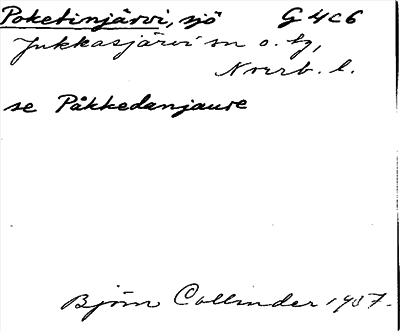 Poketinjärvi, sjö G4c6
Jukkasjärvi sn o. tg,
Nrrb. l.
se Påkkedanjaure
Björn Collinder 1937.